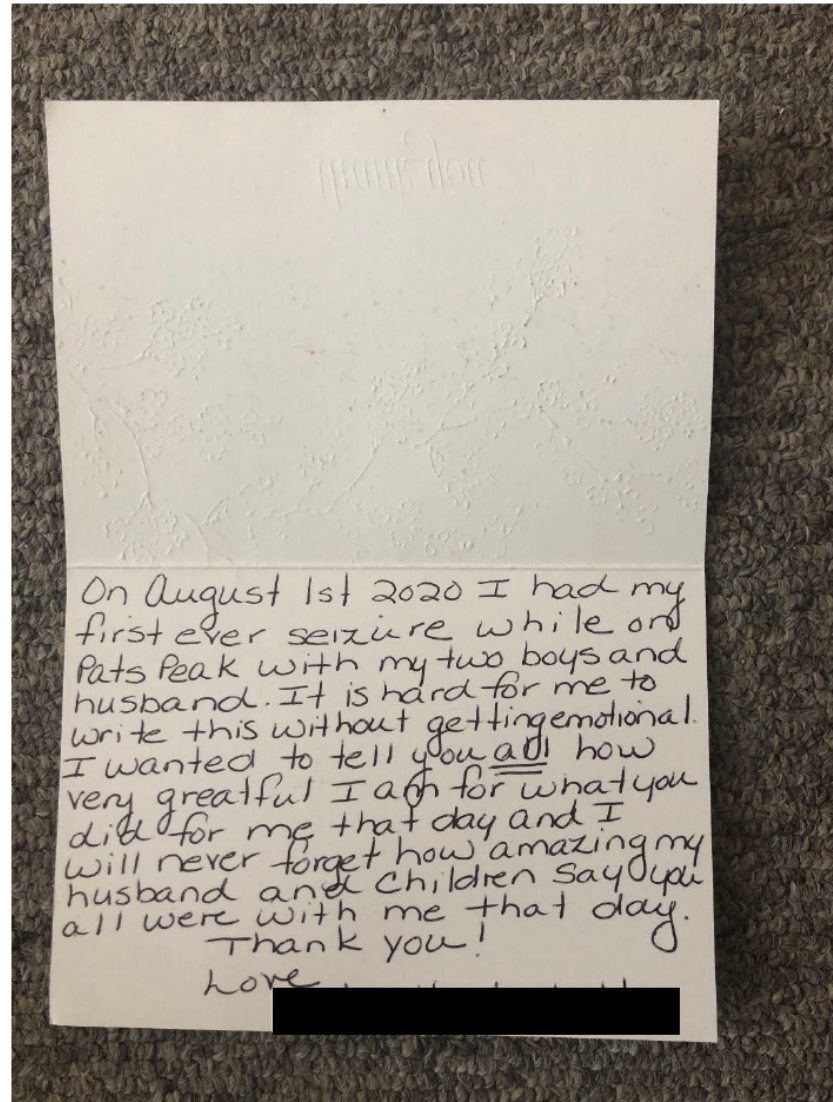 thank you
On August 1st 2020 I had my
first ever seizure while on
Pats Peak with my two boys and
husband. It is hard for me to
write this without getting emotional.
I wanted to tell you all how
very greatful I am for what you
did for me that day and I
will never forget how amazing my
husband and children say you
all were with me that day.
Thank you!
Love